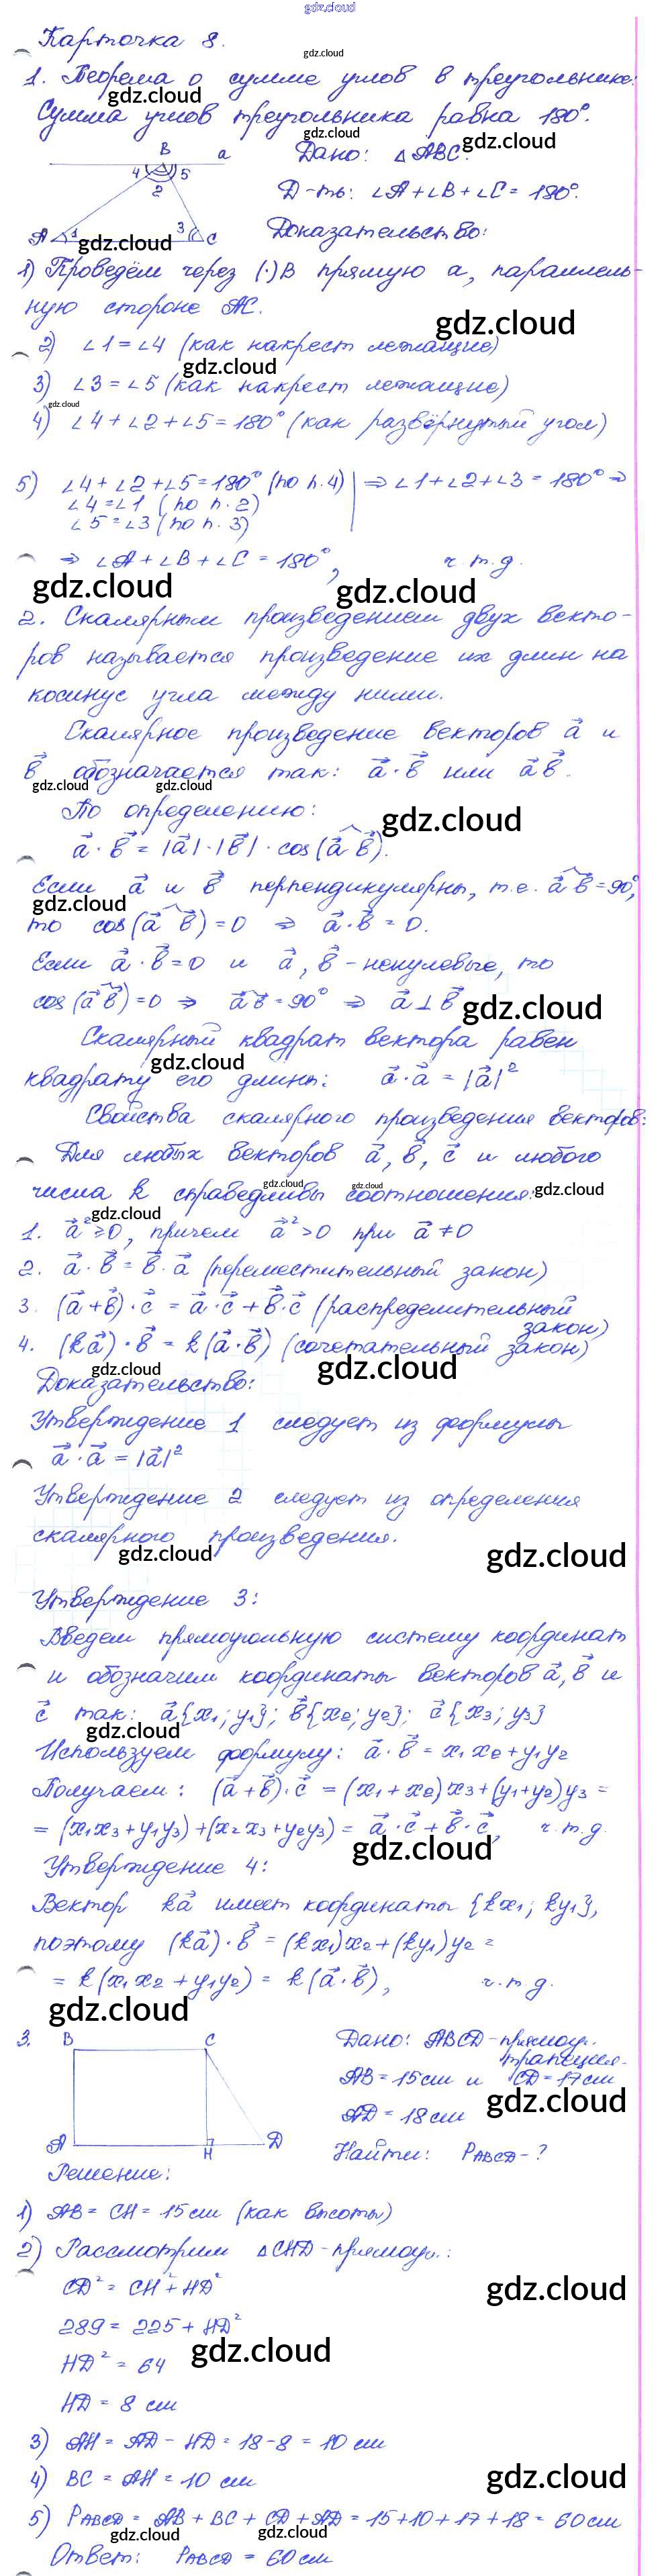 gdz.cloud
Карточка 8.
gdz.cloud
1. Теорема о сумме углов в треугольнике:
gdz.cloud
Сумма углов треугольника равна 180°.
gdz.cloud
gdz.cloud
B a Дано: △ABC.
4 2 5
Д-ть: ∠A+∠B+∠C=180°.
A 1 3 C Доказательство:
gdz.cloud
1) Проведём через (·)B прямую a, параллель-
ную стороне AC.
gdz.cloud
2) ∠1=∠4 (как накрест лежащие)
gdz.cloud
3) ∠3=∠5 (как накрест лежащие)
gdz.cloud
4) ∠4+∠2+∠5=180° (как развёрнутый угол)
5) ∠4+∠2+∠5=180° (по п.4) | ⇒ ∠1+∠2+∠3=180° ⇒
∠4=∠1 (по п.2)
∠5=∠3 (по п.3)
⇒ ∠A+∠B+∠C=180°, ч.т.д.
gdz.cloud gdz.cloud
2. Скалярным произведением двух векто-
ров называется произведение их длин на
косинус угла между ними.
Скалярное произведение векторов a⃗ и
b⃗ обозначается так: a⃗·b⃗ или a⃗b⃗.
gdz.cloud gdz.cloud
По определению:
gdz.cloud
a⃗·b⃗=|a⃗|·|b⃗|·cos(a⃗ b⃗).
Если a⃗ и b⃗ перпендикулярны, т.е. a⃗ b⃗=90°,
gdz.cloud
то cos(a⃗ b⃗)=0 ⇒ a⃗·b⃗=0.
Если a⃗·b⃗=0 и a⃗, b⃗ - ненулевые, то
cos(a⃗ b⃗)=0 ⇒ a⃗ b⃗=90° ⇒ a⃗⊥b⃗
gdz.cloud
Скалярный квадрат вектора равен
gdz.cloud
квадрату его длины: a⃗·a⃗=|a⃗|²
Свойства скалярного произведения векторов:
Для любых векторов a⃗, b⃗, c⃗ и любого
gdz.cloud gdz.cloud gdz.cloud
числа k справедливы соотношения:
gdz.cloud
1. a⃗²≥0, причем a⃗²>0 при a⃗≠0
2. a⃗·b⃗=b⃗·a⃗ (переместительный закон)
3. (a⃗+b⃗)·c⃗=a⃗·c⃗+b⃗·c⃗ (распределительный
закон)
4. (ka⃗)·b⃗=k(a⃗·b⃗) (сочетательный закон)
gdz.cloud gdz.cloud
Доказательство:
Утверждение 1 следует из формулы
a⃗·a⃗=|a⃗|²
Утверждение 2 следует из определения
скалярного произведения.
gdz.cloud gdz.cloud
Утверждение 3:
Введем прямоугольную систему координат
и обозначим координаты векторов a⃗, b⃗ и
c⃗ так: a⃗{x₁;y₁}; b⃗{x₂;y₂}; c⃗{x₃;y₃}
gdz.cloud
Используем формулу: a⃗·b⃗=x₁x₂+y₁y₂
Получаем: (a⃗+b⃗)·c⃗=(x₁+x₂)x₃+(y₁+y₂)y₃=
=(x₁x₃+y₁y₃)+(x₂x₃+y₂y₃)=a⃗·c⃗+b⃗·c⃗, ч.т.д.
gdz.cloud
Утверждение 4:
Вектор ka⃗ имеет координаты {kx₁; ky₁},
поэтому (ka⃗)·b⃗=(kx₁)x₂+(ky₁)y₂=
=k(x₁x₂+y₁y₂)=k(a⃗·b⃗), ч.т.д.
gdz.cloud
3. B C Дано: ABCD-прямоуг.
трапеция.
AB=15см и CD=17см
gdz.cloud
AD=18см
A H D Найти: P_ABCD-?
Решение:
1) AB=CH=15см (как высоты)
2) Рассмотрим △CHD-прямоуг.:
CD²=CH²+HD²
gdz.cloud
289=225+HD²
gdz.cloud
HD²=64
HD=8 см
3) AH=AD-HD=18-8=10см
4) BC=AH=10 см
gdz.cloud
5) P_ABCD=AB+BC+CD+AD=15+10+17+18=60см
gdz.cloud gdz.cloud
Ответ: P_ABCD=60см